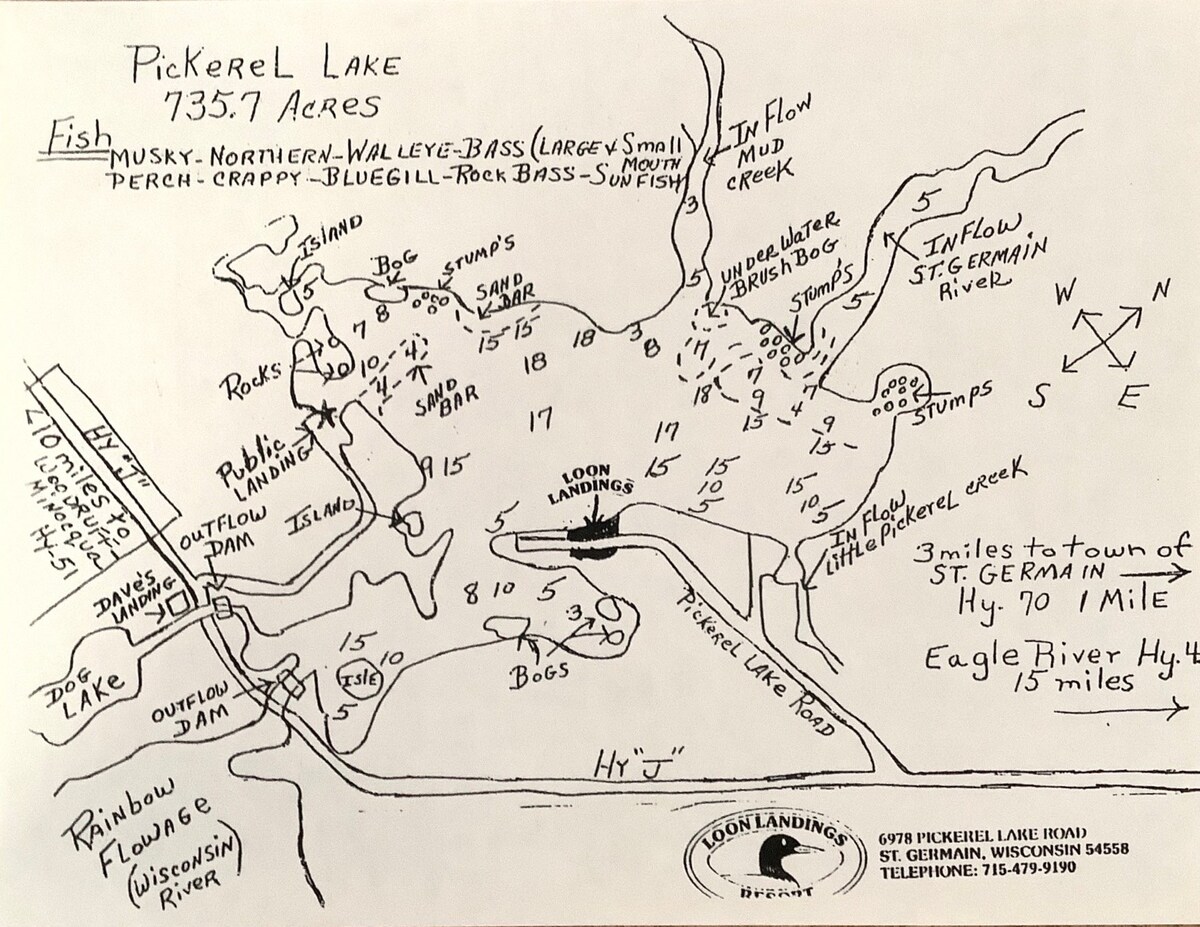 PicKereL LAKE
735.7 Acres
Fish
MUSKY-NORTHERN-WALLEYE-BASS (LARGE & Small
MOUTH
PERCH-CRAPPY-BLUEGILL-ROCK BASS-SUNFISH
IN Flow
MUD
CREEK
3
5
IN Flow
ST. GERMAIN
River
5
5
UNDER WATER
BRUSH BOG
STUMP'S
ISLAND
5
BOG
STUMP'S
SAND
BAR
7
8
15 15
18
3
8
18
W N
S E
ROCKS
10
4
4
SAND
BAR
7
7
7
18
9
15
4
9
15
STUMPS
17
17
Public
LANDING
9 15
15
15
10
5
15
10
5
LOON
LANDINGS
ISLAND
5
IN Flow
Little Pickerel Creek
HY "J"
10 miles to
WOODRUFF-
MINOCQUA
Hy-51
OUTFLOW
DAM
DAVE'S
LANDING
8 10 5
3
BOGS
Pickerel Lake Road
3 miles to town of
ST. GERMAIN
Hy. 70 1 MILE
Eagle River Hy. 4
15 miles
DOG
LAKE
OUTFLOW
DAM
15
10
ISLE
5
Hy "J"
RAINBOW
FLOWAGE
(WISCONSIN
RIVER)
LOON LANDINGS
RESORT
6978 PICKEREL LAKE ROAD
ST. GERMAIN, WISCONSIN 54558
TELEPHONE: 715-479-9190